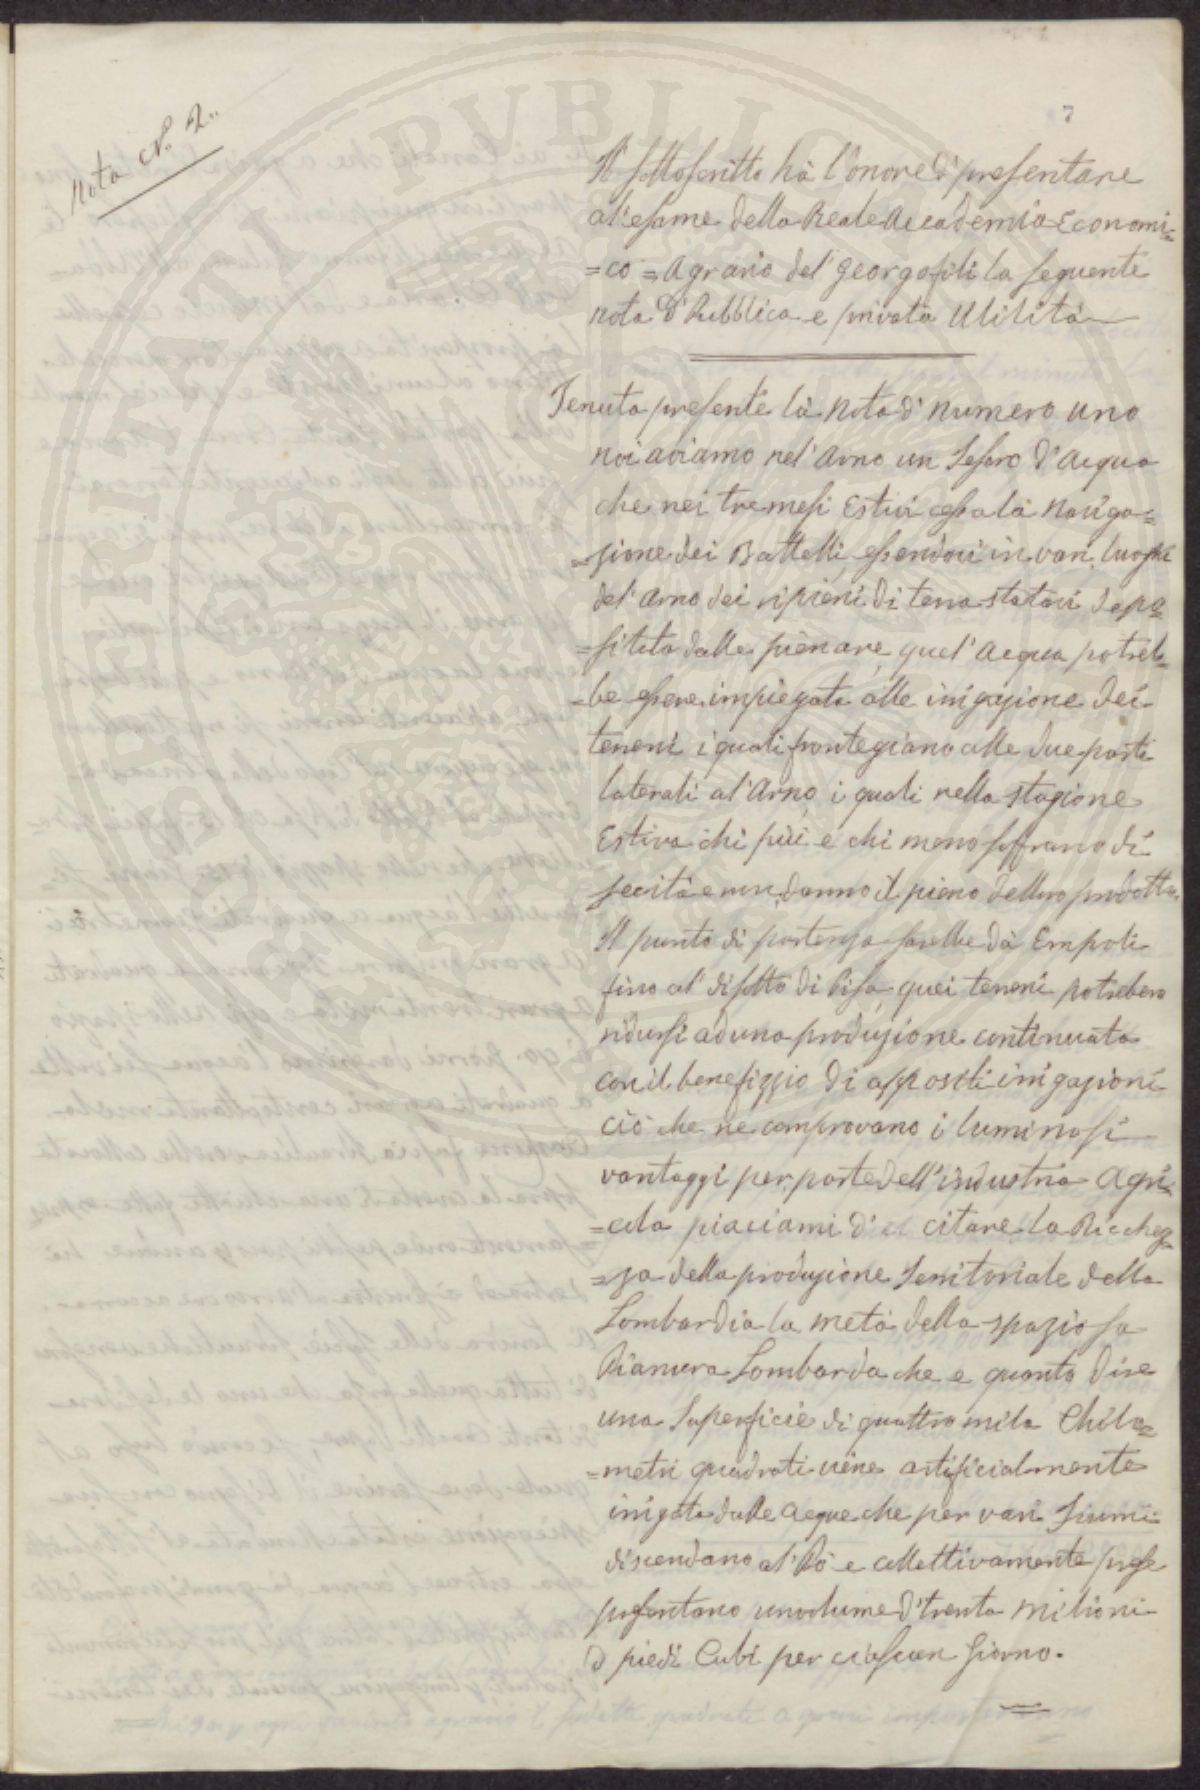 7
Nota N.º 2.
Il sottoscritto hà l'onore d' presentare
al'esame della Reale Accademia Economi=
=co=Agrario del' Georgofili la seguente
nota d' Pubblica e privata Utilità
Tenuta presente là Nota d' numero uno
noi abiamo nel' Arno un Tesoro d'Acqua
che nei tre mesi Estivi cessa là Naviga=
=zione dei Battelli, essendovi in vari luoghi
del' Arno dei ripieni di terra statavi depo=
=sitata dalle pienare, quel' Acqua potreb=
=be essere impiegata alle irrigazione dei
terreni i quali frontegiano alle due parti
laterali al' Arno, i quali nella stagione
Estiva chi più e chi meno soffrano di
secità e non danno il pieno delloro prodotto,
Il punto di partenza sarebbe dà Empoli
fino al' disotto di Pisa, quei terreni potrebero
ridursi ad una produzione continuata
con il benefizzio di appositi irrigazioni
ciò che ne comprovano i luminosi
vantaggi per parte dell'industria Agri=
=cola piaciami d' citare la Ricchez=
=za della produzione Territoriale della
Lombardia la metà della spaziosa
Pianura Lombarda che e quanto dire
una Superficie di quattro mila Chilo=
=metri quadrati viene artificialmente
irrigata dalle Acque che per vari Fiumi
discendano al' Pò e collettivamente
presentano un volume d' trenta Milioni
d' piedi Cubi per ciascun Giorno.